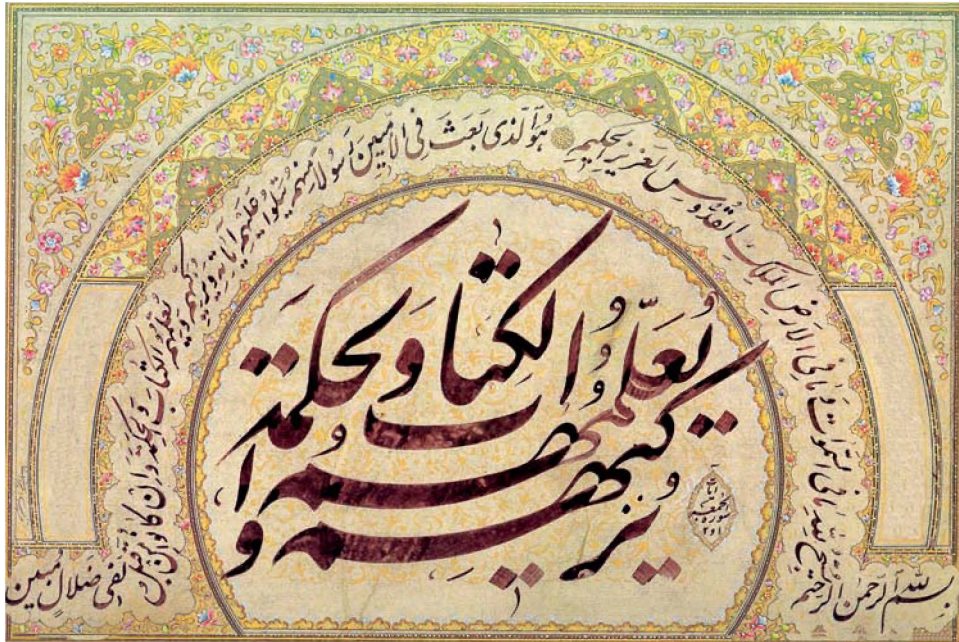 بسم الله الرحمن الرحيم
يسبح لله ما في السموات وما في الارض الملك القدوس العزيز الحكيم هو الذي بعث في الاميين رسولا منهم يتلوا عليهم آياته ويزكيهم ويعلمهم الكتاب والحكمة وان كانوا من قبل
لفي ضلال مبين
ويزكيهم ويعلمهم الكتاب والحكمة
سورة